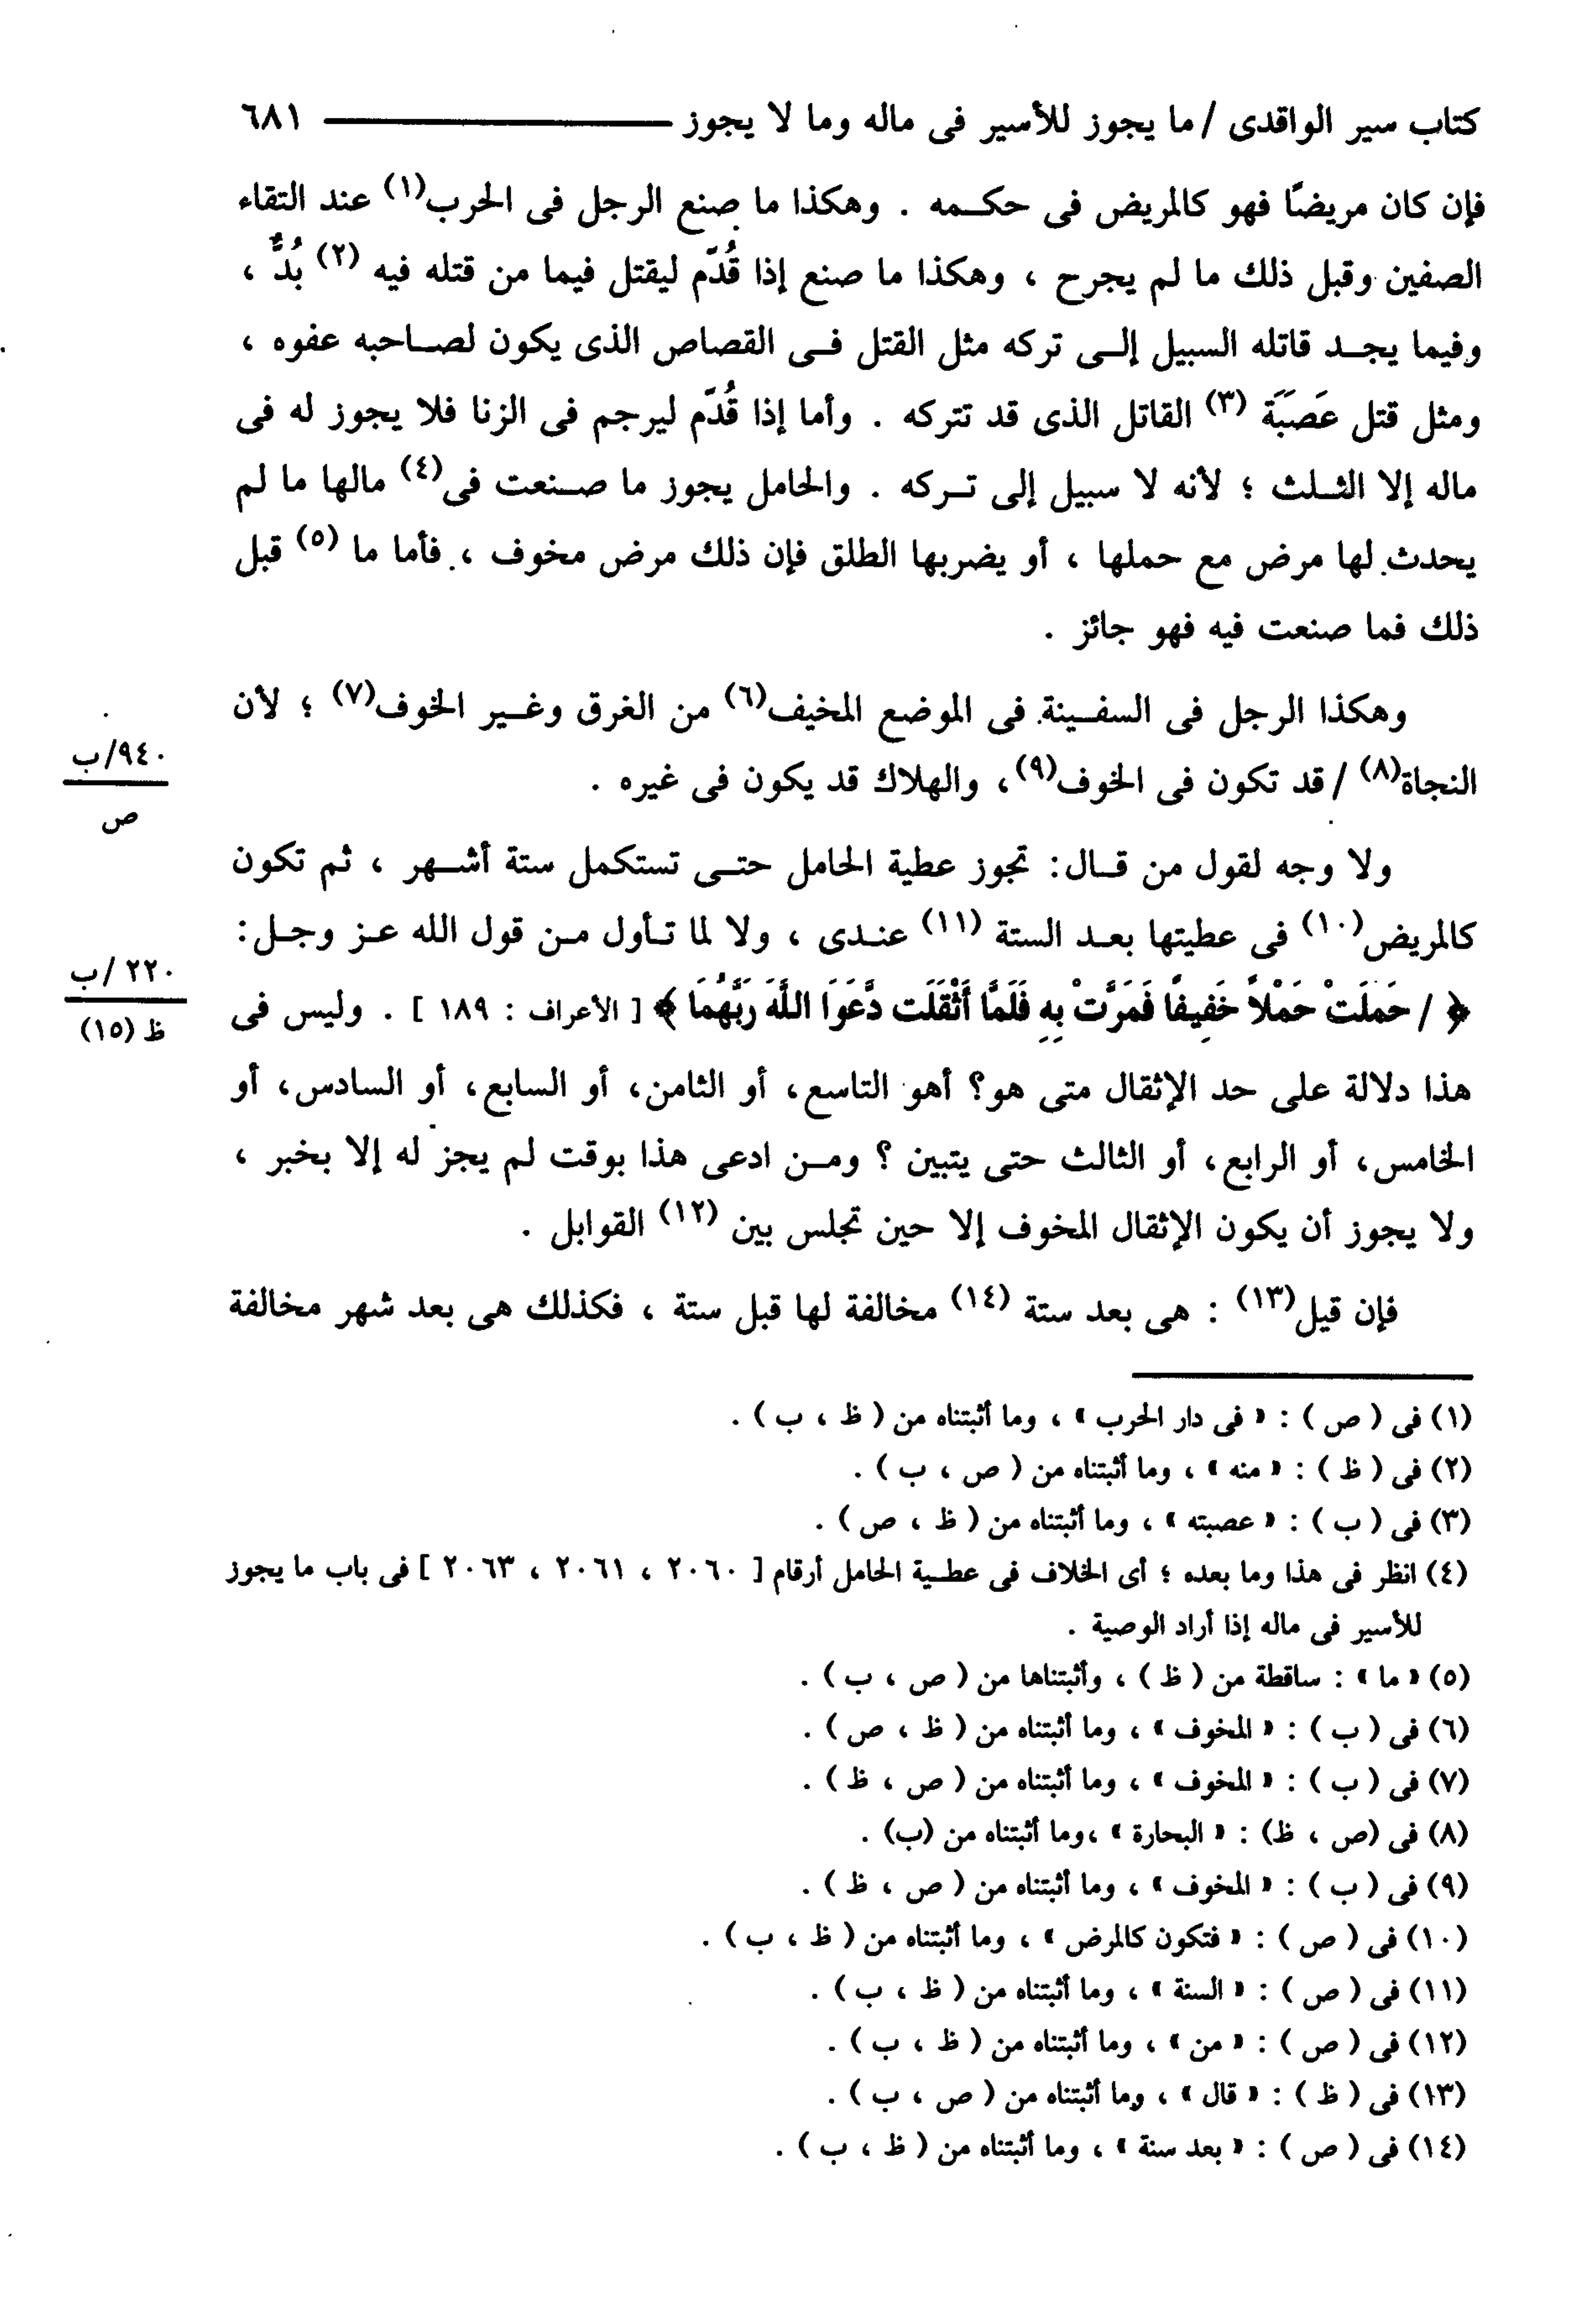 كتاب سير الواقدى / ما يجوز للأسير فى ماله وما لا يجوز ـــــــــ ٦٨١
فإن كان مريضًا فهو كالمريض فى حكمه . وهكذا ما صنع الرجل فى الحرب(١) عند التقاء
الصفين وقبل ذلك ما لم يجرح ، وهكذا ما صنع إذا قُدِّم ليقتل فيما من قتله فيه (٢) بُدٌّ ،
وفيما يجد قاتله السبيل إلى تركه مثل القتل فى القصاص الذى يكون لصاحبه عفوه ،
ومثل قتل عَصَبَة (٣) القاتل الذى قد تتركه . وأما إذا قُدِّم ليرجم فى الزنا فلا يجوز له فى
ماله إلا الثلث ؛ لأنه لا سبيل إلى تركه . والحامل يجوز ما صنعت فى(٤) مالها ما لم
يحدث لها مرض مع حملها ، أو يضربها الطلق فإن ذلك مرض مخوف ، فأما ما (٥) قبل
ذلك فما صنعت فيه فهو جائز .
وهكذا الرجل فى السفينة فى الموضع المخيف(٦) من الغرق وغير الخوف(٧) ؛ لأن
النجاة(٨) / قد تكون فى الخوف(٩)، والهلاك قد يكون فى غيره .
٩٤٠/ب
ص
ولا وجه لقول من قال: تجوز عطية الحامل حتى تستكمل ستة أشهر ، ثم تكون
كالمريض(١٠) فى عطيتها بعد الستة (١١) عندى ، ولا لما تأول من قول الله عز وجل:
﴿ / حَمَلَتْ حَمْلاً خَفِيفًا فَمَرَّتْ بِهِ فَلَمَّا أَثْقَلَت دَّعَوَا اللَّهَ رَبَّهُمَا ﴾ [ الأعراف : ١٨٩ ] . وليس فى
٢٢٠/ب
ظ (١٥)
هذا دلالة على حد الإثقال متى هو؟ أهو التاسع، أو الثامن، أو السابع، أو السادس، أو
الخامس، أو الرابع، أو الثالث حتى يتبين ؟ ومن ادعى هذا بوقت لم يجز له إلا بخبر ،
ولا يجوز أن يكون الإثقال المخوف إلا حين تجلس بين (١٢) القوابل .
فإن قيل(١٣) : هى بعد ستة (١٤) مخالفة لها قبل ستة ، فكذلك هى بعد شهر مخالفة
(١) فى ( ص ) : « فى دار الحرب » ، وما أثبتناه من ( ظ ، ب ) .
(٢) فى ( ظ ) : « منه » ، وما أثبتناه من ( ص ، ب ) .
(٣) فى ( ب ) : « عصبته » ، وما أثبتناه من ( ظ ، ص ) .
(٤) انظر فى هذا وما بعده ؛ أى الخلاف فى عطية الحامل أرقام [ ٢٠٦٠ ، ٢٠٦١ ، ٢٠٦٣ ] فى باب ما يجوز
للأسير فى ماله إذا أراد الوصية .
(٥) « ما » : ساقطة من ( ظ ) ، وأثبتناها من ( ص ، ب ) .
(٦) فى ( ب ) : « المخوف » ، وما أثبتناه من ( ظ ، ص ) .
(٧) فى ( ب ) : « المخوف » ، وما أثبتناه من ( ص ، ظ ) .
(٨) فى (ص ، ظ) : « البحارة » ،وما أثبتناه من (ب) .
(٩) فى ( ب ) : « المخوف » ، وما أثبتناه من ( ص ، ظ ) .
(١٠) فى ( ص ) : « فتكون كالمرض » ، وما أثبتناه من ( ظ ، ب ) .
(١١) فى ( ص ) : « السنة » ، وما أثبتناه من ( ظ ، ب ) .
(١٢) فى ( ص ) : « من » ، وما أثبتناه من ( ظ ، ب ) .
(١٣) فى ( ظ ) : « قال » ، وما أثبتناه من ( ص ، ب ) .
(١٤) فى ( ص ) : « بعد سنة » ، وما أثبتناه من ( ظ ، ب ) .